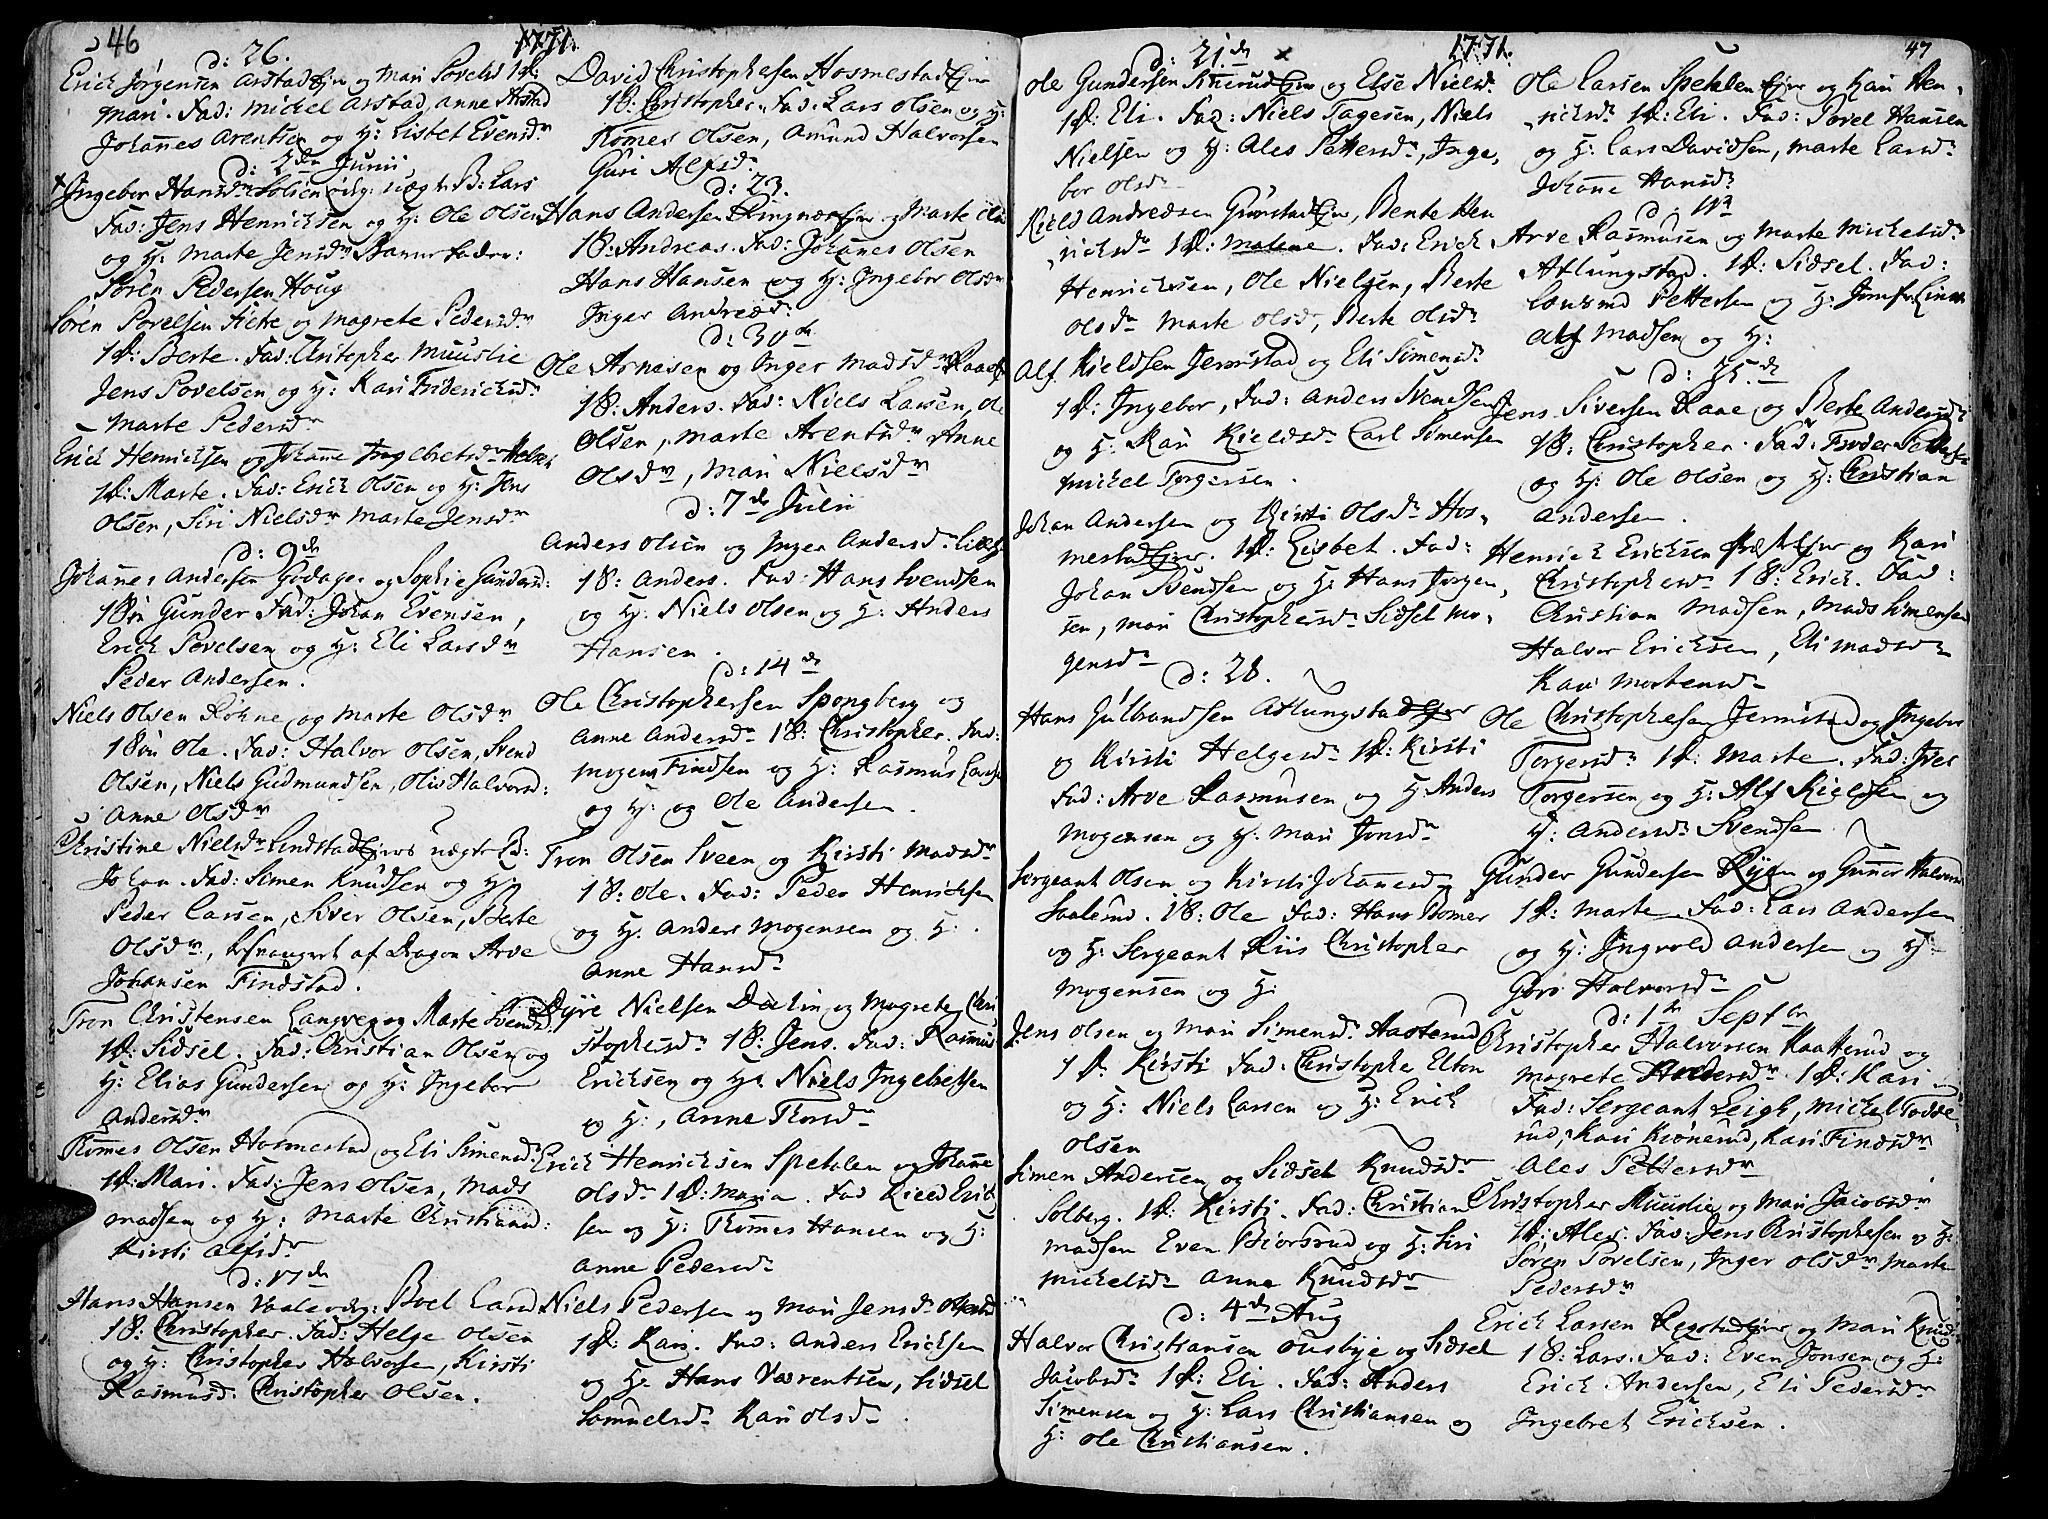 46
1771.
d: 26.
Erich Jørgensen Arstad Ejer og Mari Povelsd 1 P:
Mari. Fad: Michel Arstad, Anne Arstad
Johannes Arentsen og H: Lisbet Evensdr
d: 2dn Junii
Ingebor Hansdr Solien Lars
Fad: Jens Henrichsen og H: Ole Olsen
og H: Marte Jensdr Barnefader:
Søren Pedersen Houg
Søren Povelsen og Magrete Pedersdr
1 P: Berte. Fad: Christopher Muuslie
Jens Povelsen og H: Kari Friderichsdr
Marte Pedersdr
Erich Henrichsen og Johanne Ingebretsdr
1 P: Marte. Fad: Erich Olsen og H: Jens
Olsen, Siri Nielsdr Marte Jensdr
d: 9de
Johannes Andersen Godager og Sophie Gundersd:
1 Søn Gunder Fad: Johan Evensen,
Erich Povelsen og H: Eli Larsdr
Peder Andersen.
Niels Olsen Røhne og Marte Olsdr
1 Søn Ole. Fad: Halvor Olsen, Svend
Olsen, Niels Gudmundsen, Halvorsd:
Anne Olsdr
Christine Nielsdr Lindstad Ejer
Johan. Fad: Simen Knudsen og H:
Peder Larsen, Siver Olsen, Berte
Olsdr, besvangret af Dragon Arve
Johansen Findstad.
Tron Christensen Langveg og Marte Svendsd.
1 P: Sidsel. Fad: Christian Olsen og
H: Elias Gundersen og H: Ingebor
Andersdr
Tomes Olsen Hosmestad og Eli Simensd.
1 P: Mari. Fad: Jens Olsen, Mads
Madsen og H: Marte Christiansd:
Kirsti Alfsdr
d: 17de
Hans Hansen Boel Larsd
1 B: Christopher. Fad: Helge Olsen
og H: Christopher Halvorsen, Kirsti
Rasmusd: Christopher Olsen.
David Christophersen Hosmestad Ejer
1 B: Christopher. Fad: Lars Olsen og H:
Tomes Olsen, Amund Halvorsen
Guri Alfsdr
d: 23.
Hans Andersen Ringnæs Ejer og Marte
1 B: Andreas. Fad: Johanes Olsen
Hans Hansen og H: Ingebor Olsdr
Inger Andreæd:
d: 30de
Ole Arnesen og Inger Madsdr
1 B: Anders. Fad: Niels Larsen, Ole
Olsen, Marte Arentsdr Anne
Olsdr, Mari Nielsdr
d: 7de Julii
Anders Olsen og Inger Andersd.
1 B: Anders. Fad: Hans Svendsen
og H: Niels Olsen og H: Anders
Hansen.
d: 14de
Ole Christophersen Spongberg og
Anne Andersdr 1 B: Christopher. Fad:
Mogens Findsen og H: Rasmus Larsen
og H: og Ole Andersen.
Tron Olsen Sveen og Kirsti Madsdr
1 B: Ole. Fad: Peder Henrichsen
og H: Anders Mogensen og H:
Anne Hansdr
Dyre Nielsen Dælin og Magrete Chri
stophersdr 1 B: Jens. Fad: Rasmus
Ericksen og H: Niels Ingebretsen
og H:, Anne Thorsdr
Erich Henrichsen Spetalen og Johanne
Olsdr 1 P: Maria. Fad Kield Erich
sen og H: Thomes Hansen og H:
Anne Pedersdr
Niels Pedersen og Mari Jensdr
1 P: Kari. Fad: Anders Ericksen
og H: Hans Værentsen, Sidsel
Samuelsdr Kari Olsdr
1771.
47
d: 21.de
Ole Gundersen Ejer og Else Nielsd.
1 P: Eli. Fad: Niels Tagesen, Niels
Nielsen og H: Ales Pettersdr, Inge,
bor Olsdr
Kield Andresen Grønstad Ejer, Bente Hen
richsdr 1 P: Malene. Fad: Erich
Henrichsen, Ole Nielsen, Berte
Olsdr Marte Olsdr, Berte Olsdr
Alf Kieldsen Jemstad og Eli Simensdr
1 P: Ingebor, Fad: Anders Svendsen
og H: Kari Kieldsdr Carl Simensen
Michel Torgersen.
Johan Andersen og Kirsti Olsdr Hos,
mestad Ejer. 1 P: Lisbet. Fad:
Johan Svendsen og H: Hans Jørgen,
sen, Mari Christophersdr Sidsel Mo,
gensdr
d: 28.
Hans Gulbrandsen Atlungstad Ejer
og Kirsti Helgesdr 1 P: Kirsti
Fad: Arve Rasmusen og H Anders
Mogensen og H: Mari Jonsdr
Sergeant Olsen og Kirsti Johannesdr
Saalerud. 1 B: Ole Fad: Hans Bømer
og H: Sergeant Riis Christopher
Mogensen og H:
Jens Olsen og Mari Simensdr Haaterud
1 P: Kirsti Fad: Christopher Elton
og H: Niels Larsen og H: Erich
Olsen
Simen Andersen og Sidsel Knudsdr
Solberg. 1 P: Kirsti. Fad: Christian
Madsen Even Biørsrud og H: Siri
Michelsdr Anne Knudsdr
d: 4de Aug
Halvor Christiansen Ousbye og Sidsel
Jacobsdr 1 P: Eli. Fad: Anders
Simensen og H: Lars Christiansen og
H: Ole Christiansen.
Ole Larsen Spetalen Ejer og Kari Hen,
richsdr 1 P: Eli. Fad: Povel Hansen
og H: Lars Davidsen, Marte Larsdr
Johanne Hansdr
d: 11te
Arve Rasmusen og Marte Michelsdr
Atlungstad. 1 P: Sidsel. Fad:
Pettersen og H: Jomfr
Alf Madsen og H:
d: 25.de
Jens Siversen Raae og Berte Andersdr
1 B: Christopher. Fad: Peder Pettersen
og H: Ole Olsen og H: Christian
Andersen.
Henrich Ericksen Ejer og Kari
Christophersdr 1 B: Erich. Fad:
Christian Madsen, Mads Simensen
Halvor Ericksen, Eli Madsdr
Kari Mortensdr
Ole Christophersen Jemstad og Ingebor
Torgersdr 1 P: Marte. Fad: Iver
Torgersen og H: Alf Kieldsen og
H: Andersdr Svendsen
Gunder Gundersen Ryen og Guner Halvorsd
1 P: Marte. Fad: Lars Andersen
og H: Ingvold Andersen og H:
Goro Halvorsdr
d: 1te Septbr
Christopher Halvorsen Kaatterud og
Magrete Andersdr. 1 P: Kari
Fad: Sergeant Leigh, Michel Todde
rud, Kari Kiønerud, Kari Findsdr
Ales Pettersdr
Christopher Muuslie og Mari Jacobsdr
1 P: Ales. Fad: Jens Christophersen og H:
Søren Povelsen, Inger Olsdr Marte
Pedersdr
Erich Larsen Ejer og Mari Knudsd
1 B: Lars. Fad: Even Jonsen og H:
Erich Andersen, Eli Pedersdr
Ingebret Ericksen.